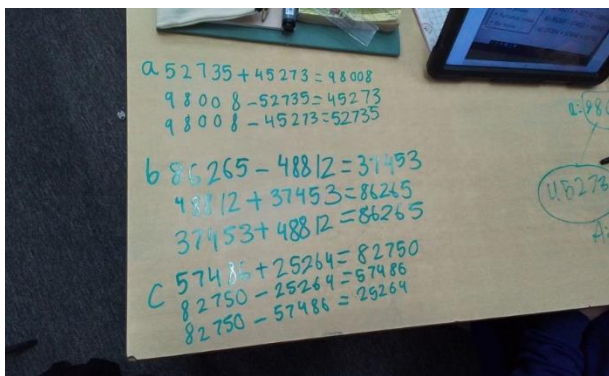 a 52735 + 45273 = 98008
98008 - 52735 = 45273
98008 - 45273 = 52735
b 86265 - 48812 = 37453
48812 + 37453 = 86265
37453 + 48812 = 86265
c 57486 + 25264 = 82750
82750 - 25264 = 57486
82750 - 57486 = 25264
45273